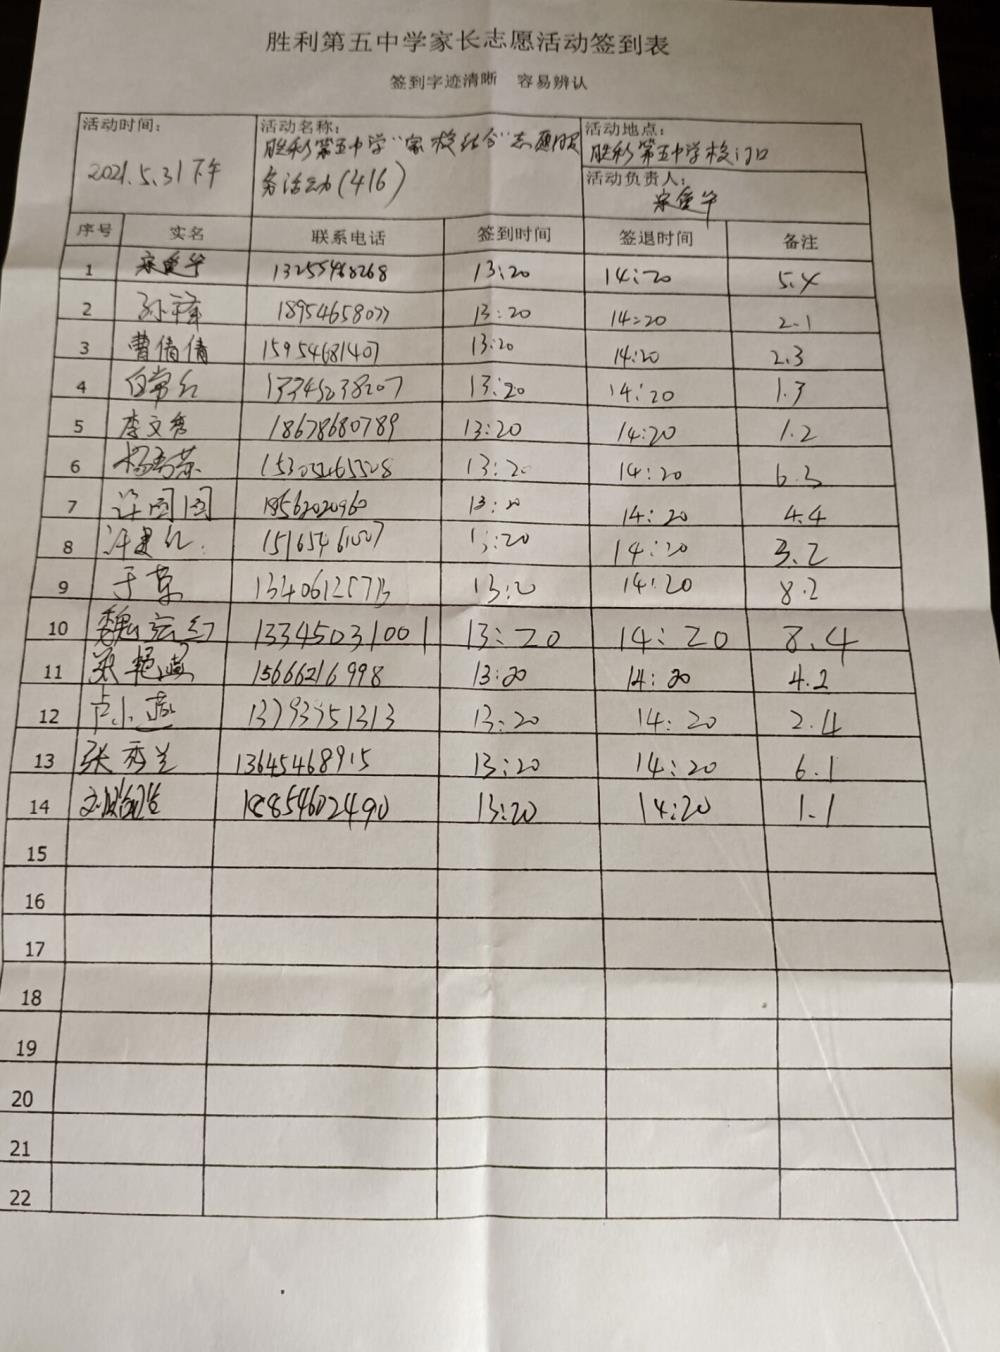 胜利第五中学家长志愿活动签到表
签到字迹清晰 容易辨认
活动时间： 2021.5.31下午
活动名称： 胜利第五中学"家校结合"志愿服
务活动(416)
活动地点： 胜利第五中学校门口
活动负责人： 宋爱华
序号 实名 联系电话 签到时间 签退时间 备注
1 宋爱华 13255468268 13:20 14:20 5.4
2 18954658077 13:20 14:20 2.1
3 曹倩倩 15954681407 13:20 14:20 2.3
4 白常红 13345038207 13:20 14:20 1.3
5 李文秀 18678680789 13:20 14:20 1.2
6 13:20 14:20 6.3
7 许团团 13:20 14:20 4.4
8 13:20 14:20 3.2
9 于菊 13:20 14:20 8.2
10 13345031001 13:20 14:20 8.4
11 15666216998 13:20 14:20 4.2
12 卢小燕 13793951313 13:20 14:20 2.4
13 张秀兰 13645468915 13:20 14:20 6.1
14 18854602490 13:20 14:20 1.1
15
16
17
18
19
20
21
22